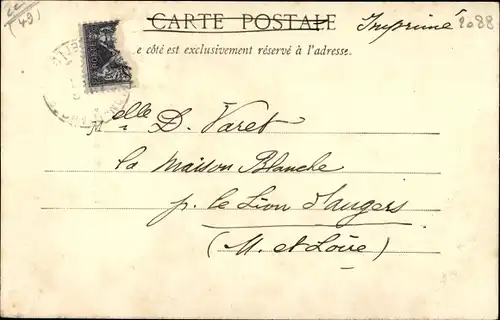 CARTE POSTALE
Imprimé 2088
(49)
e côté est exclusivement réservé à l'adresse.
Melle D. Varet
la Maison Blanche
p. le Lion d'Angers
(M. et Loire)